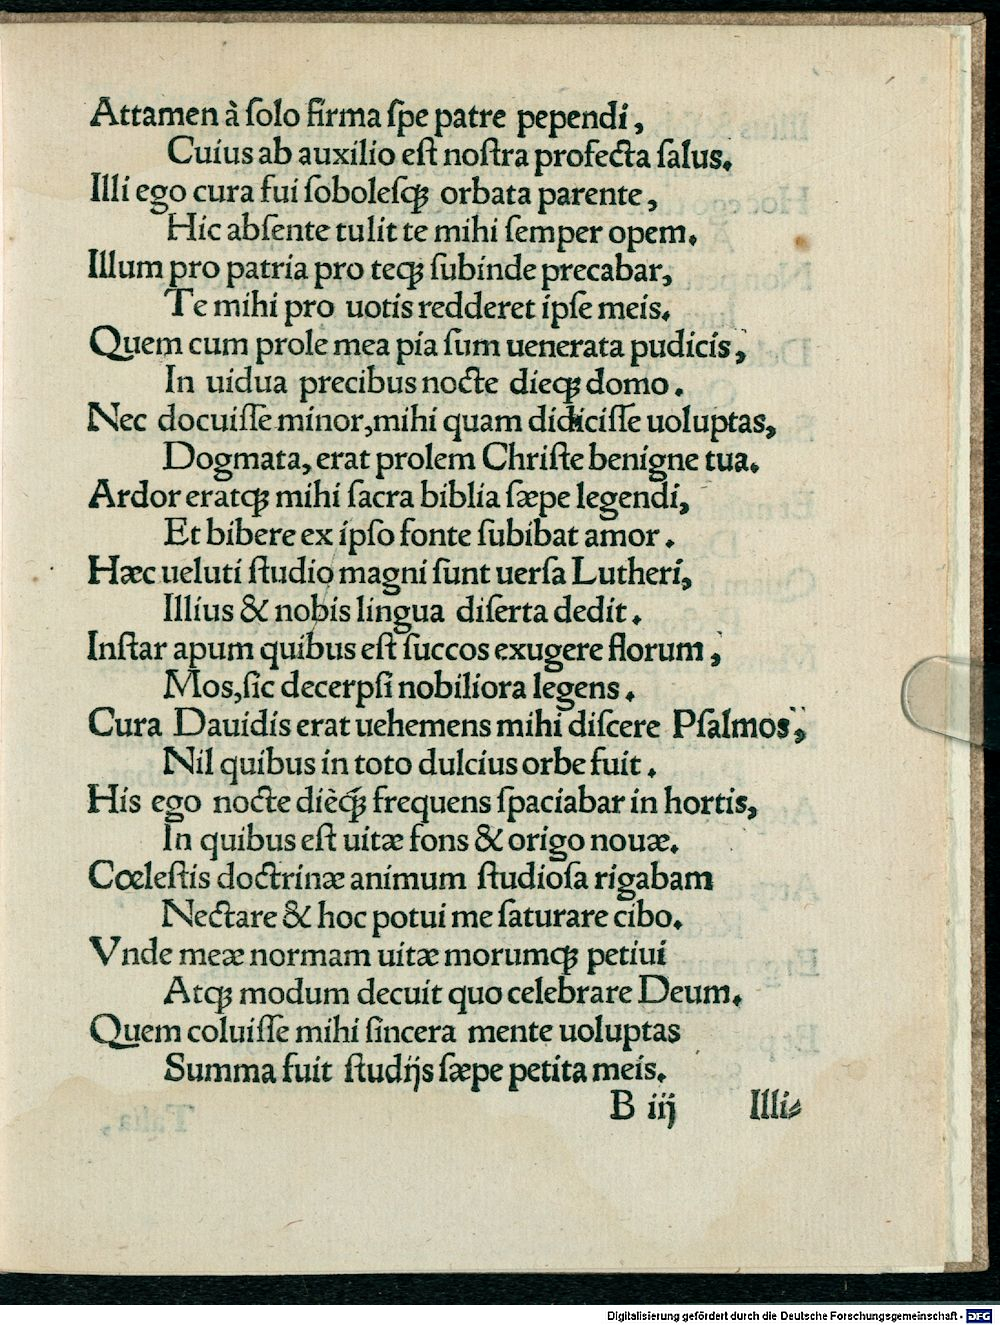 Attamen à ſolo firma ſpe patre pependi,
Cuius ab auxilio eſt noſtra profecta ſalus.
Illi ego cura fui ſoboleſqꝫ orbata parente,
Hic abſente tulit te mihi ſemper opem.
Illum pro patria pro teqꝫ ſubinde precabar,
Te mihi pro uotis redderet ipſe meis.
Quem cum prole mea pia ſum uenerata pudicis,
In uidua precibus nocte dieqꝫ domo.
Nec docuiſſe minor, mihi quam didiciſſe uoluptas,
Dogmata, erat prolem Chriſte benigne tua.
Ardor eratqꝫ mihi ſacra biblia ſæpe legendi,
Et bibere ex ipſo fonte ſubibat amor.
Hæc ueluti ſtudio magni ſunt uerſa Lutheri,
Illius & nobis lingua diſerta dedit.
Inſtar apum quibus eſt ſuccos exugere florum,
Mos, ſic decerpſi nobiliora legens.
Cura Dauidis erat uehemens mihi diſcere Pſalmos,
Nil quibus in toto dulcius orbe fuit.
His ego nocte dièqꝫ́ frequens ſpaciabar in hortis,
In quibus eſt uitæ fons & origo nouæ.
Cœleſtis doctrinæ animum ſtudioſa rigabam
Nectare & hoc potui me ſaturare cibo.
Vnde meæ normam uitæ morumqꝫ petiui
Atqꝫ modum decuit quo celebrare Deum.
Quem coluiſſe mihi ſincera mente uoluptas
Summa fuit ſtudijs ſæpe petita meis.
B iij Illi⸗
Digitalisierung gefördert durch die Deutsche Forschungsgemeinschaft - DFG